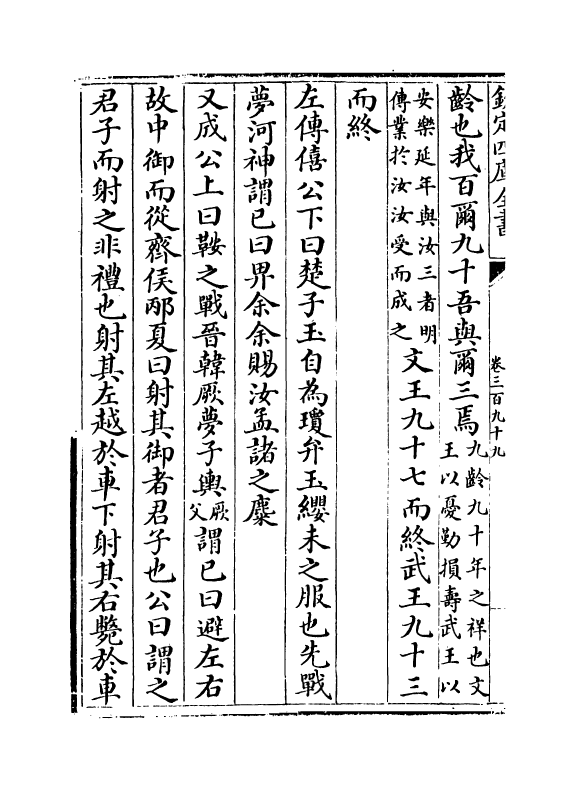 欽定四庫全書
卷三百九十九
齡也我百爾九十吾與爾三焉九齡九十年之祥也文王以憂勤損壽武王以
安樂延年與汝三者明傳業於汝汝受而成之文王九十七而終武王九十三
而終
左傳僖公下曰楚子玉自為瓊弁玉纓未之服也先戰
夢河神謂已曰畀余余賜汝孟諸之麋
又成公上曰鞍之戰晉韓厥夢子輿厥父謂已曰避左右
故中御而從齊侯邴夏曰射其御者君子也公曰謂之
君子而射之非禮也射其左越於車下射其右斃於車